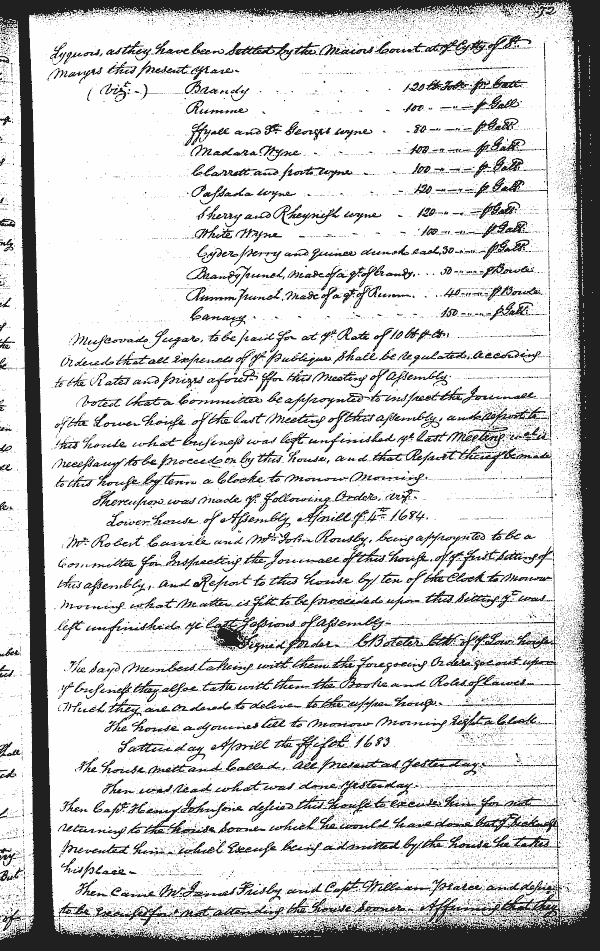 52
Lyquors, as they have been Settled by the Maiors Court at ye Citty of St.
Maryes this present yeare.
(vizt.-) Brandy . . . 120 lb Tobo. pr Gall.
Rumme . . . 100 - " - " - pr Gall.
ffyall and St. Georges wyne . 80 - " - " - pr Gall.
Madara Wyne . . . 100 - " - " - pr Gall.
Clarrett and porto wyne . . 100 - " - " - pr Gall.
Passada wyne . . . 120 - " - " - pr Gall.
Sherry and Rhenish wyne . . 120 - " - " - pr Gall.
White Wyne . . . 100 - " - " - pr Gall.
Cyder perry and quince drinck each 30 - " - " - pr Gall.
Brandy punch, made of a qt. of brandy . . 50 - " - " - pr Bowle
Rumm punch, made of a qt. of Rumm . . 40 - " - " - pr Bowle
Canary . . . 150 - " - " - pr Gall.
Muscovado Sugars, to be paid for at ye Rate of 10 lb pr lb.
Ordered that all Expences of ye publique, Shall be regulated, According
to the Rates and prizes aforesd. ffor this Meeting of Assembly.
Voted that a Committee be appoynted to inspect the Journall
of the Lower house of the last Meeting of this assembly, and report to
this house what business was left unfinished ye last Meeting
necessary to be proceeded on by this house, and that Report thereof be made
to this house by tenn a Clocke to morrow Morning.
Thereupon was made ye following Order, vizt.
Lower house of Assembly Aprill ye 4th 1684.
Mr. Robert Carvile and Mr. John Rousby, being appoynted to be a
Committee for Inspecting the Journall of this house, of ye first sitting of
this assembly, and Report to this house by ten of the Clock to Morrow
morning what Matter is fitt to be proceeded upon this Sitting yt was
left unfinished ye last Sessions of assembly.
Signed p order. C Boteler Clk. of ye Low. house
The sayd Members taking with them the foregoeing Order goe out upon
ye business they alsoe take with them the Booke and Roles of Lawes
Which they are Ordered to deliver to the upper house.
The house adjournes till to Morrow Morning Eight a Clock
Satturday Aprill the ffifth 1683
The house mett and Called, All present as Yesterday.
Then was read what was done Yesterday.
Then Capt. Henry Johnsone desired this house to excuse him for not
returning to the house sooner which he would have done but sickness
prevented him - which Excuse being admitted by the house he takes
his place -
Then Came Mr. James Frisby and Capt. William Pearce and desire
to be Excused for not attending the house sooner - Affirming that they